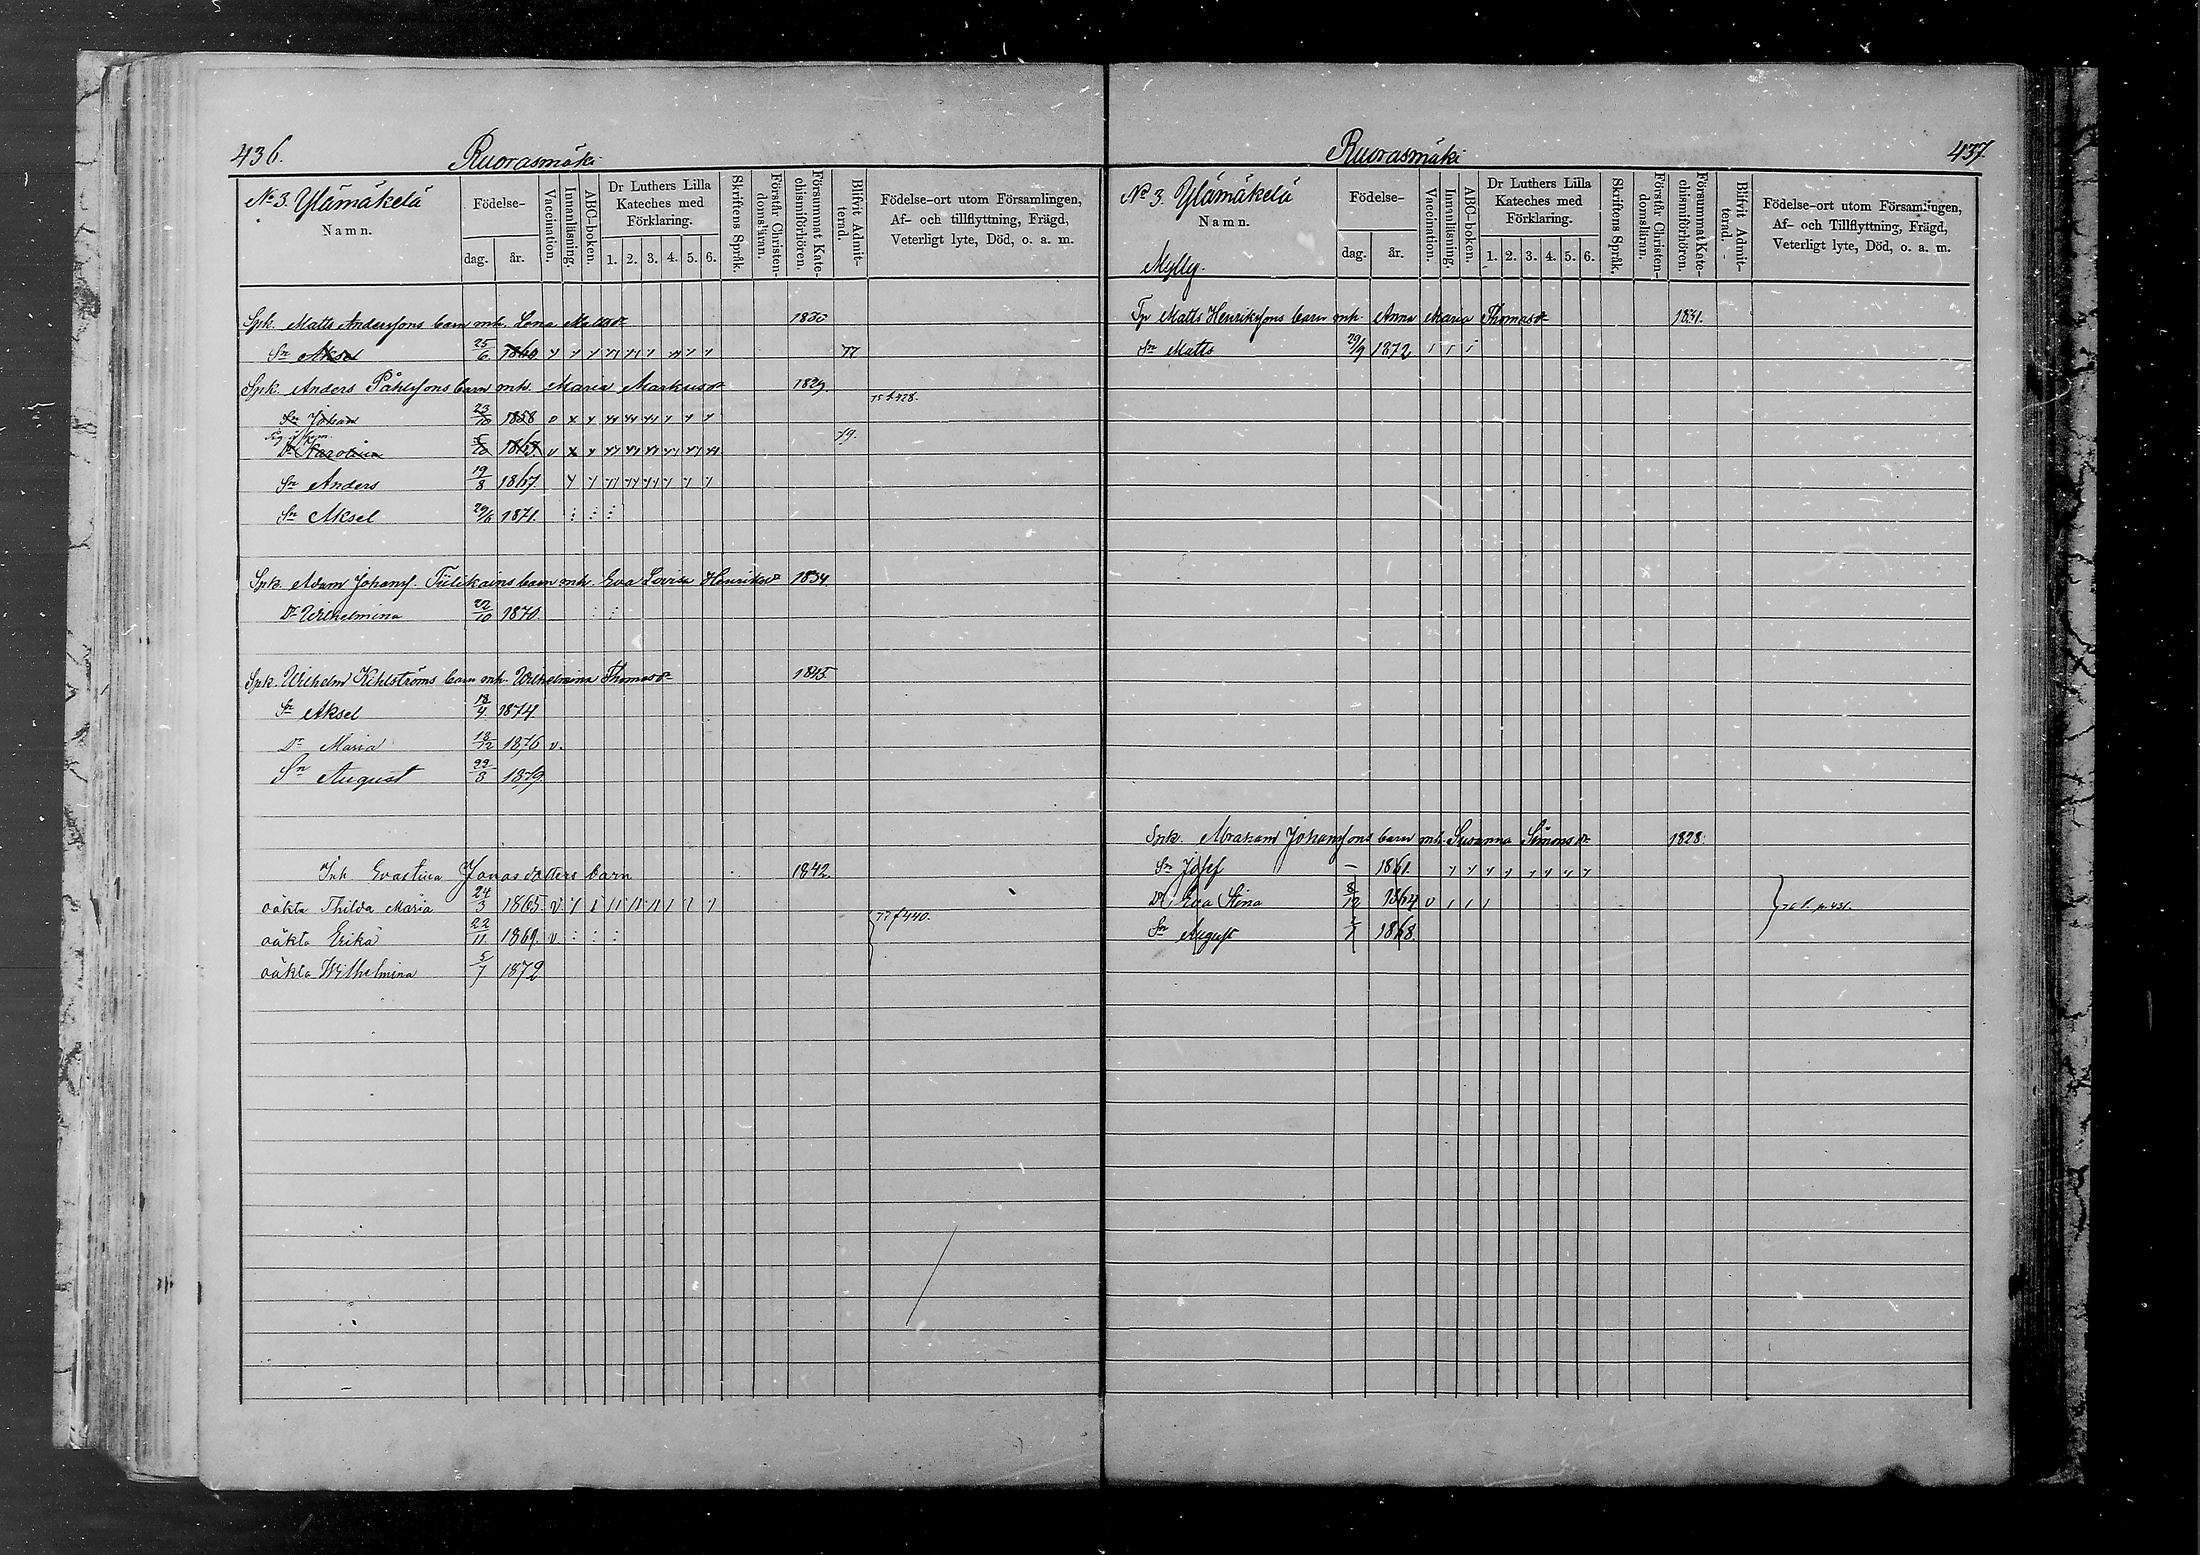 436. Ruorasmäki
No 3. Ylämäkelä
Namn.
Födelse-
dag. år.
Vaccination.
Innanläsning.
ABC-boken.
Dr Luthers Lilla
Kateches med
Förklaring.
1. 2. 3. 4. 5. 6.
Skriftens Språk.
Förstår Christen-
domsläran.
Försummat Kate-
chismiförhören.
Blifvit Admit-
terad.
Födelse-ort utom Församlingen,
Af- och tillflyttning, Frägd,
Veterligt lyte, Död, o. a. m.
Spk. Matts Anderssons barn mh. Lena Mattsdr 1830
Sn Aksel 25/6 1860 77
Spk. Anders Påhlssons barn mh. Maria Markusdr 1829.
75 f. 428.
Sn Johan 23/10 1858 v
Dr Karolina 5/10 1863. v 79.
Sn Anders 19/8 1867.
Sn Aksel 29/6 1871.
Spk. Adam Johanss. Tiilikains barn mh. Eva Lovisa Henriksdr 1834
Dr Wilhelmina 22/10 1870.
Spk. Wilhelm Kihlströms barn mh. Wilhelmina Thomasdr 1845.
Sn Aksel 18/4 1874.
Dr Maria 18/12 1876 v.
Sn August 22/3 1879
Inh. Evastina Jonasdotters barn 1842.
oäkta Thilda Maria 24/3 1865. v. 77 f 440.
oäkta Erika 22/11 1869. v
oäkta Wilhelmina 5/7 1872
Ruorasmäki 437.
No 3. Ylämäkelä
Namn.
Mylly.
Födelse-
dag. år.
Vaccination.
Innanläsning.
ABC-boken.
Dr Luthers Lilla
Kateches med
Förklaring.
1. 2. 3. 4. 5. 6.
Skriftens Språk.
Förstår Christen-
domsläran.
Försummat Kate-
chismiförhören.
Blifvit Admit-
terad.
Födelse-ort utom Församlingen,
Af- och Tillflyttning, Frägd,
Veterligt lyte, Död, o. a. m.
Tp Matts Henrikssons barn mh. Anna Maria Thomasdr 1831.
Sn Matts 29/9 1872
Spk. Abraham Johanssons barn mh. Susanna Simonsdr 1828.
Sn Josef – 1861.
Dr Eva Stina 8/12 1864 v 76 f. p. 431.
Sn August 1868.